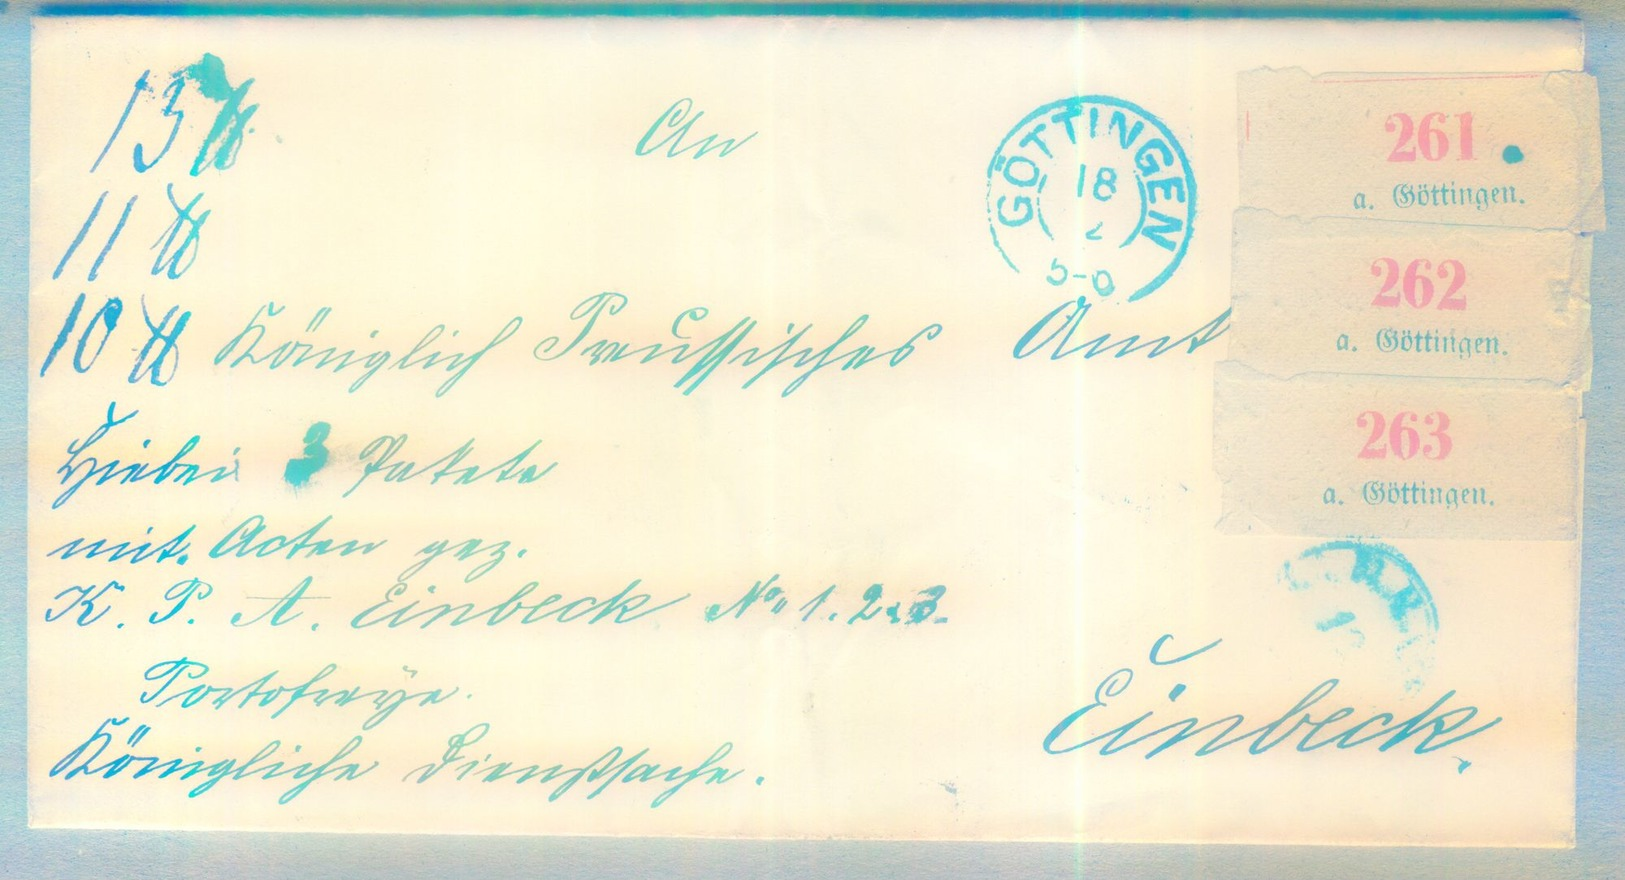 13 ℔
11 ℔
10 ℔
An
GÖTTINGEN
18
2
5-6
261
a. Göttingen.
262
a. Göttingen.
263
a. Göttingen.
Königlich Preussisches Amt
Hiebei 3 Pakete
mit Acten gez.
K. P. A. Einbeck No 1. 2. 3.
Portofreye.
Königliche Dienstsache.
Einbeck.